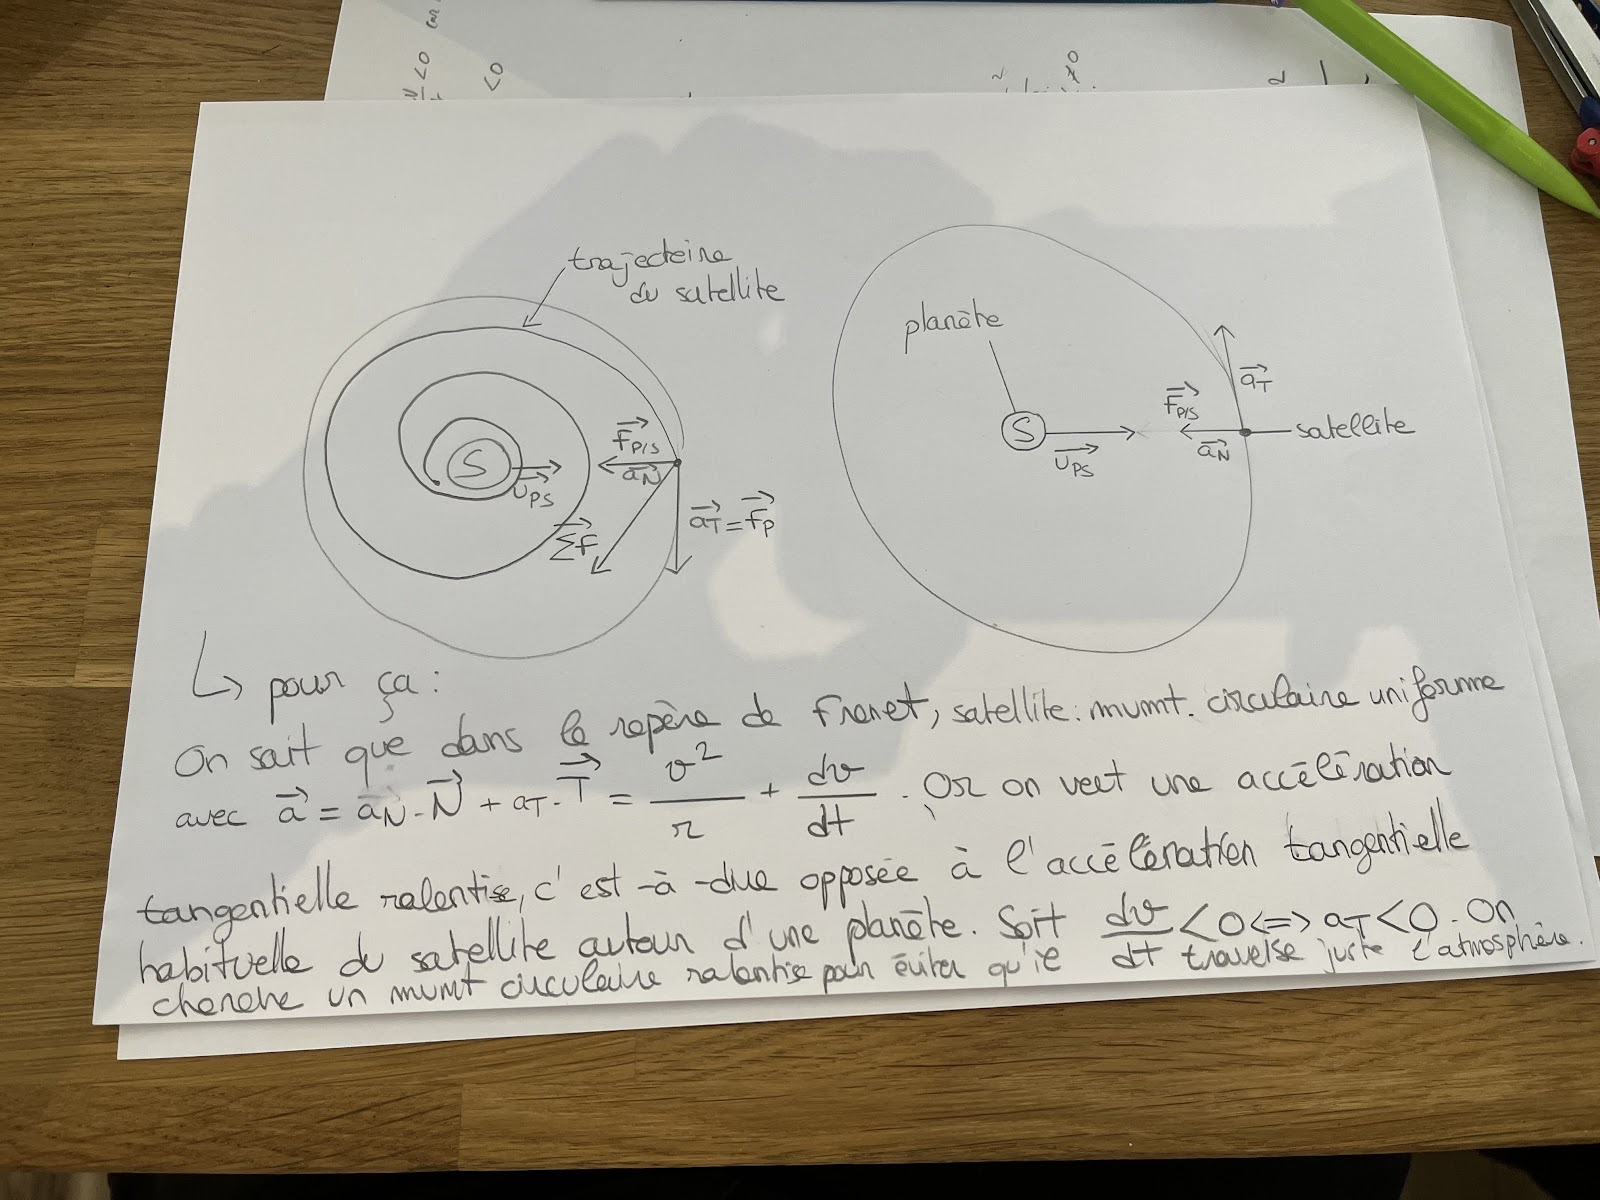 car
<0
<0
≠0
trajectoire
du satellite
planète
S
U⃗PS
F⃗P/S
a⃗N
a⃗T = f⃗p
Σf⃗
S
U⃗PS
F⃗P/S
a⃗N
a⃗T
satellite
↳ pour ça :
On sait que dans le repère de Frenet, satellite : mvmt. circulaire uniforme
avec a⃗ = a⃗N . N⃗ + aT . T⃗ = v²/r + dv/dt . Or on veut une accélération
tangentielle ralentise, c'est-à-dire opposée à l'accélération tangentielle
habituelle du satellite autour d'une planète. Soit dv/dt <0 <=> aT <0. On
cherche un mvmt circulaire ralentise pour éviter qu'ie traverse juste l'atmosphère.